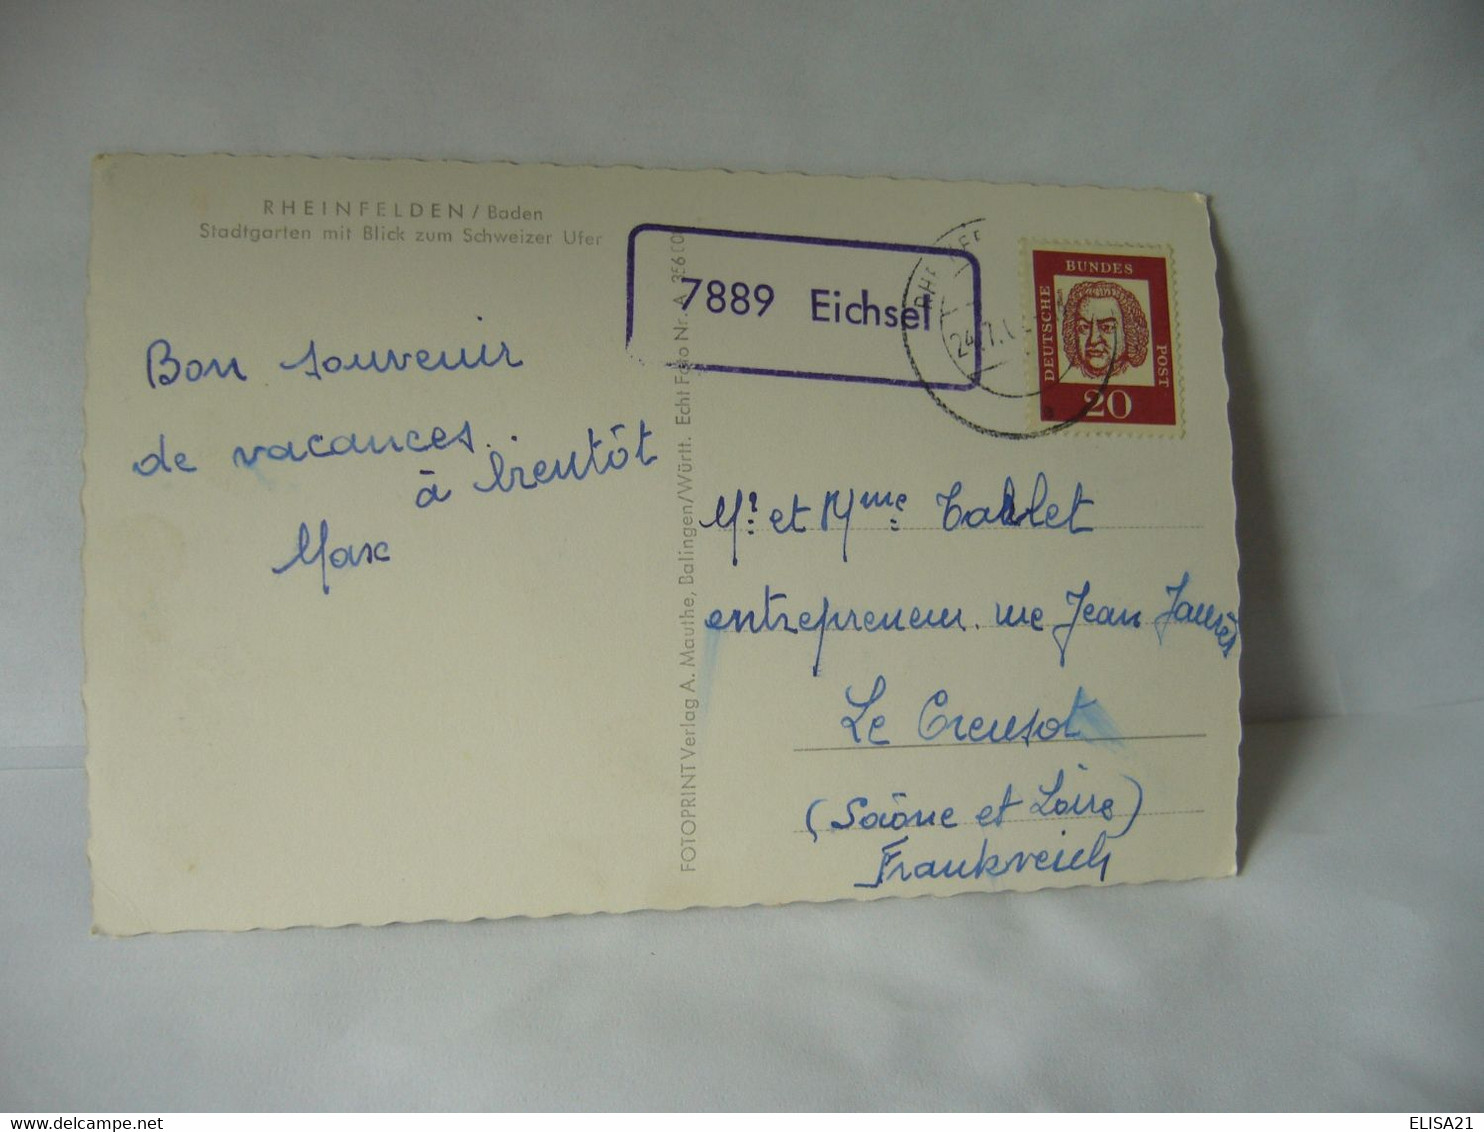 RHEINFELDEN / Baden
Stadtgarten mit Blick zum Schweizer Ufer
Bon souvenir
de vacances.
à bientôt
Max
FOTOPRINT Verlag A. Mauthe, Balingen/Württ. Echt Foto Nr. A 356
7889 Eichsel
24.7.
DEUTSCHE
BUNDES
POST
20
Mr. et Mme
entrepreneur. rue Jean Jaurès
Le Creusot
(Saône et Loire)
Frankreich
ELISA21